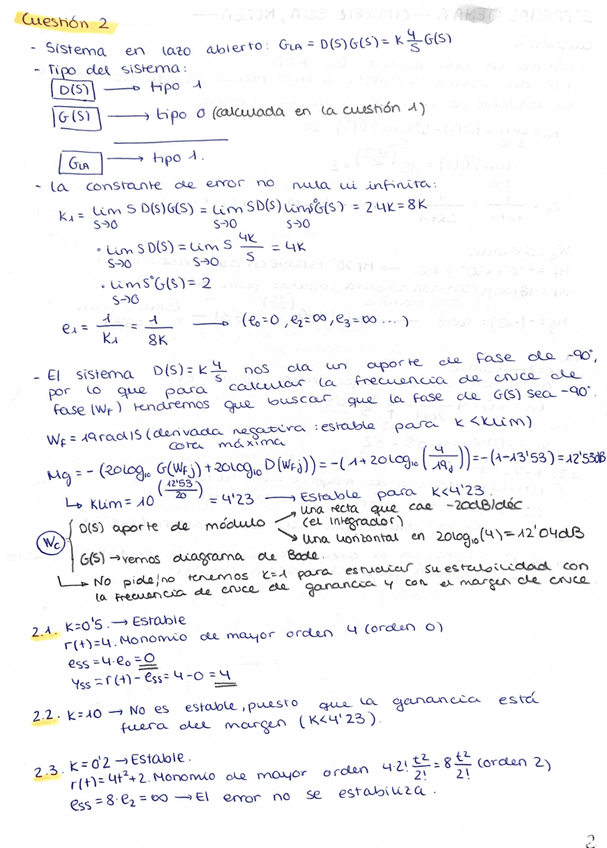 Cuestión 2
- Sistema en lazo abierto: GLA = D(S)G(S) = K 4/S G(S)
- Tipo del sistema:
D(S) → tipo 1
G(S) → tipo 0 (calculada en la cuestión 1)
GLA → tipo 1.
- La constante de error no nula ni infinita:
K1 = lim S D(S)G(S) = lim S D(S) lim S°G(S) = 2·4K = 8K
S→0 S→0 S→0
· lim S D(S) = lim S 4K/S = 4K
S→0 S→0
· lim S°G(S) = 2
S→0
e1 = 1/K1 = 1/8K → (e0=0, e2=∞, e3=∞ ...)
- El sistema D(S) = K 4/S nos da un aporte de fase de -90°,
por lo que para calcular la frecuencia de cruce de
fase (WF) tendremos que buscar que la fase de G(S) sea -90°.
WF = 19 rad/S (derivada negativa: estable para K < Klim)
cota máxima
Mg = -(20log10 G(WFj) + 20log10 D(WFj)) = -(1+20log10(4/19j)) = -(1-13'53) = 12'53dB
↳ Klim = 10^(12'53/20) = 4'23 → Estable para K<4'23.
Wc { D(S) aporte de módulo → una recta que cae -20dB/déc.
(el integrador)
→ una horizontal en 20log10(4) = 12'04dB
G(S) → vemos diagrama de Bode.
↳ No pide/no tenemos K=1 para estudiar su estabilidad con
la frecuencia de cruce de ganancia y con el margen de cruce.
2.1. K=0'5. → Estable
r(t)=4. Monomio de mayor orden 4 (orden 0)
ess = 4·e0 = 0
yss = r(t) - ess = 4-0 = 4
2.2. K=10 → No es estable, puesto que la ganancia está
fuera del margen (K<4'23).
2.3. K=0'2 → Estable.
r(t) = 4t²+2. Monomio de mayor orden 4·2! t²/2! = 8 t²/2! (orden 2)
ess = 8·e2 = ∞ → El error no se estabiliza.
2